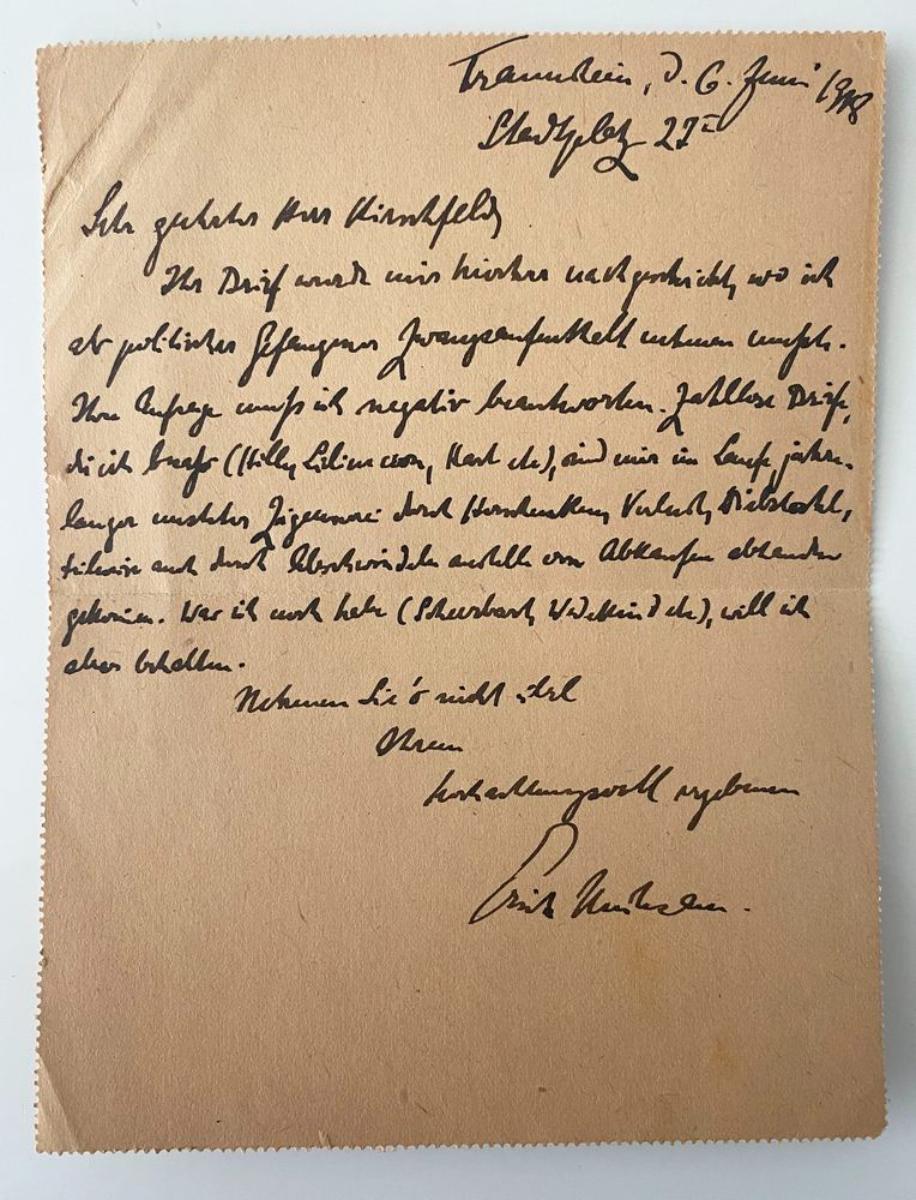 Traunstein, d. 6. Juni 1918
Stadtplatz 27 I
Sehr geehrter Herr Hirschfeld,
Ihr Brief wurde mir hierher nachgeschickt, wo ich
als politischer Gefangener Zwangsaufenthalt nehmen mußte.
Ihre Anfrage muß ich negativ beantworten. Zahllose Briefe,
die ich besaß (Hille, Liliencron, Hart etc), sind mir im Laufe jahre-
langer unsteter Zigeunerei durch Verlust, Diebstahl,
teilweise auch durch Abschwindeln anstelle von Abkaufen abhanden
gekommen. Was ich noch habe (Scheerbart, Wedekind etc), will ich
aber behalten.
Nehmen Sie's nicht übel
Ihrem
hochachtungsvoll ergebenen
Erich Mühsam.